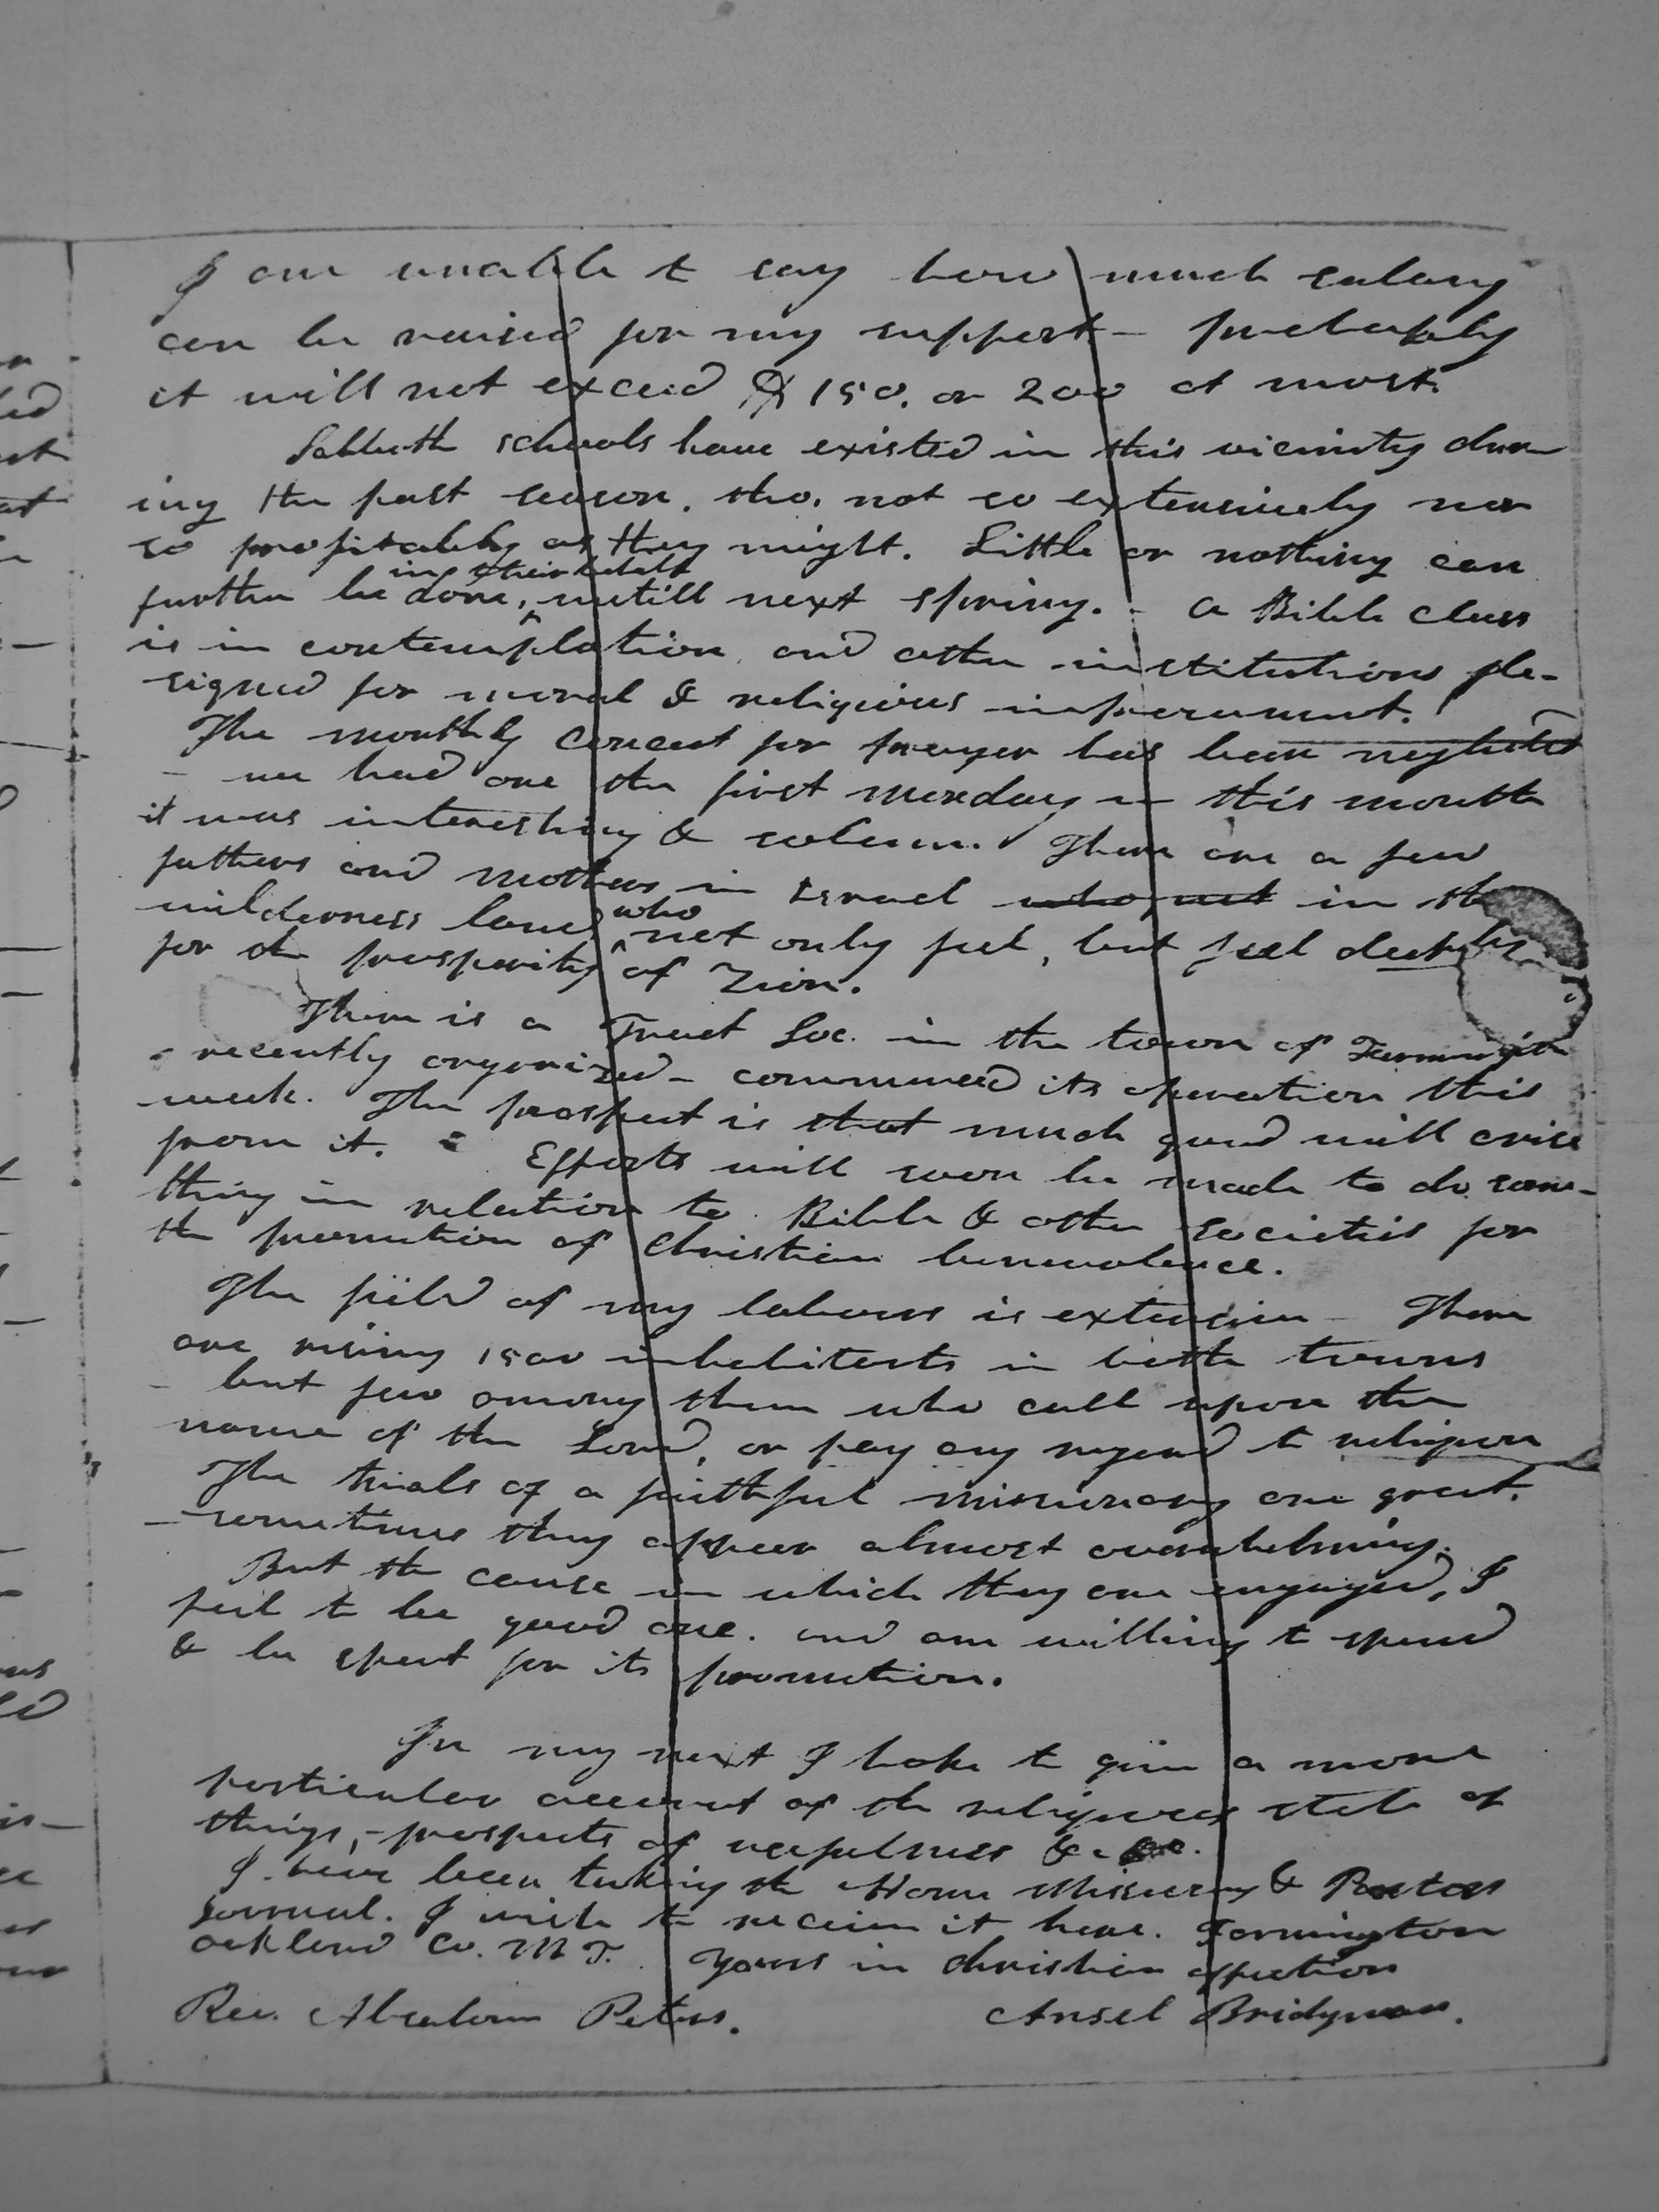 I am unable to say how much salary
can be raised for my support — probably
it will not exceed $150. or 200 at most.
Sabbath schools have existed in this vicinity dur
ing the past season. tho. not so extensively nor
so profitably as they might. Little or nothing can
in their behalf
further be done, untill next spring. — A Bible class
is in contemplation and other institutions de-
signed for moral & religious improvement.
The monthly concert for prayer has been neglected
— we had one the first monday in this month
it was interesting & solemn. There are a few
fathers and mothers in Israel who not in the
who
wilderness land not only feel, but feel deeply
for the prosperity of Zion.
There is a Tract Soc. in the town of Farmington
- recently organized — commenced its operation this
week. The prospect is that much good will arise
from it. - Efforts will soon be made to do some-
thing in relation to Bible & other societies for
the promotion of Christian benevolence.
The field of my labours is extensive — There
are rising 1500 inhabitants in both towns
— but few among them who call upon the
name of the Lord, or pay any regard to religion
The trials of a faithful missionary are great.
— sometimes they appear almost overwhelming.
But the cause in which they are engaged, I
feel to be good one. and am willing to spend
& be spent for its promotion.
In my next I hope to give a more
particular account of the religious state of
things, - prospects of usefulness &c
I have been taking the Home Missionary & Pastors
Journal. I wish to receive it here. Farmington
Oakland Co. M T. Yours in christian affection
Rev. Absalom Peters. Ansel Bridgman.